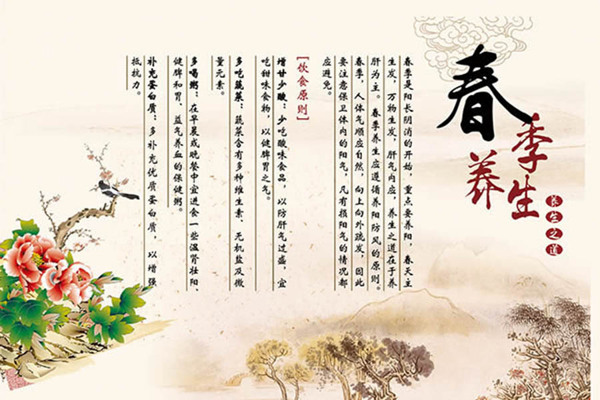 春季养生
养生之道
春季是阳长阴消的开始，重点要养阳，春天主
生发，万物生发，肝气内应，养生之道在于养
肝为主。春季养生应遵循养阳防风的原则。
春季，人体气顺应自然，向上向外疏发，因此
要注意保卫体内的阳气，凡有损阳气的情况都
应避免。
[饮食原则]
增甘少酸：少吃酸味食品，以防肝气过盛，宜
吃甜味食物，以健脾胃之气。
多吃蔬菜：蔬菜含有多种维生素、无机盐及微
量元素。
多喝粥：在早晨或晚餐中宜进食一些温肾壮阳
健脾和胃、益气养血的保健粥。
补充蛋白质：多补充优质蛋白质，以增强
抵抗力。